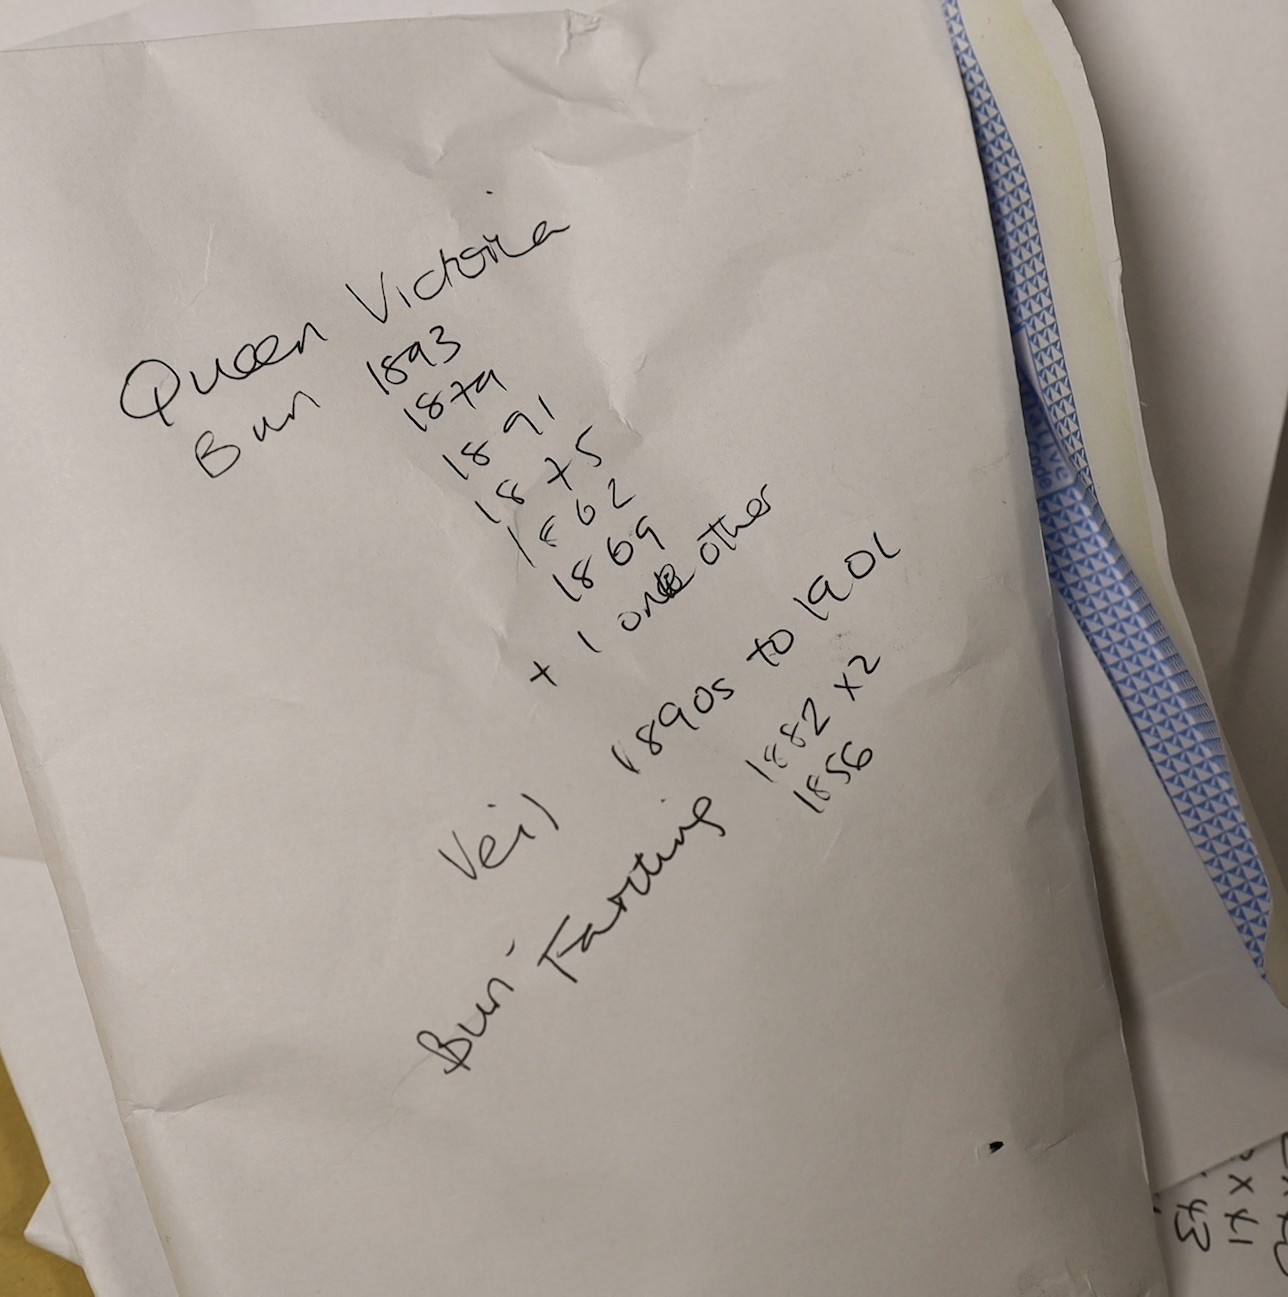 Queen Victoria
Bun 1893
1879
1891
1875
1862
1869
+ 1 one other
Veil 1890s to 1901
Bun Farthing 1882 x2
1856
x £1
£3